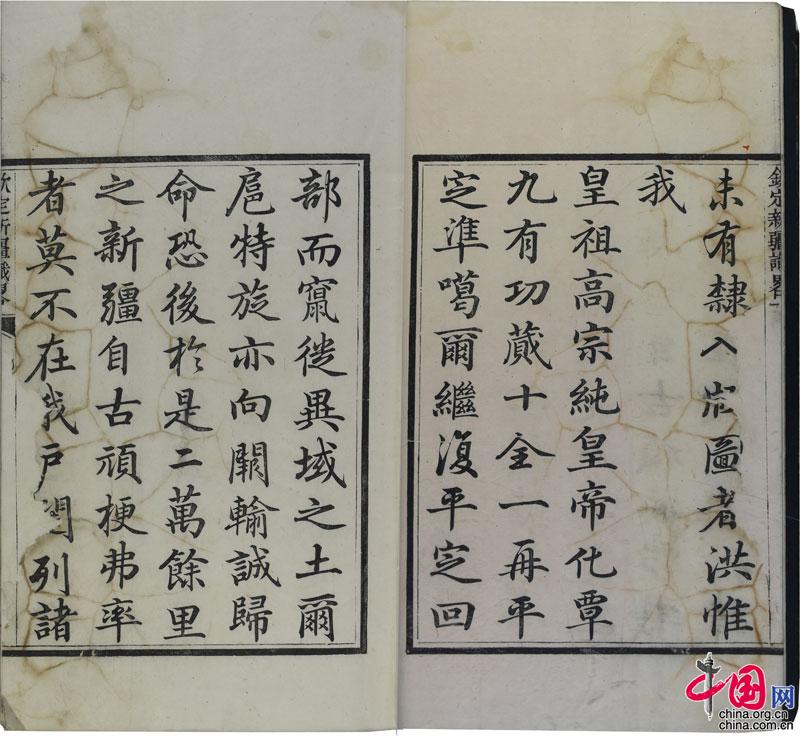 欽定新疆識畧
未有隸入版圖者洪惟
我
皇祖高宗純皇帝化覃
九有功蕆十全一再平
定準噶爾繼復平定回
部而竄徙異域之土爾
扈特旋亦向闕輸誠歸
命恐後於是二萬餘里
之新疆自古頑梗弗率
者莫不在我戶闥列諸
欽定新疆識畧
中国网
china.org.cn
china.com.cn